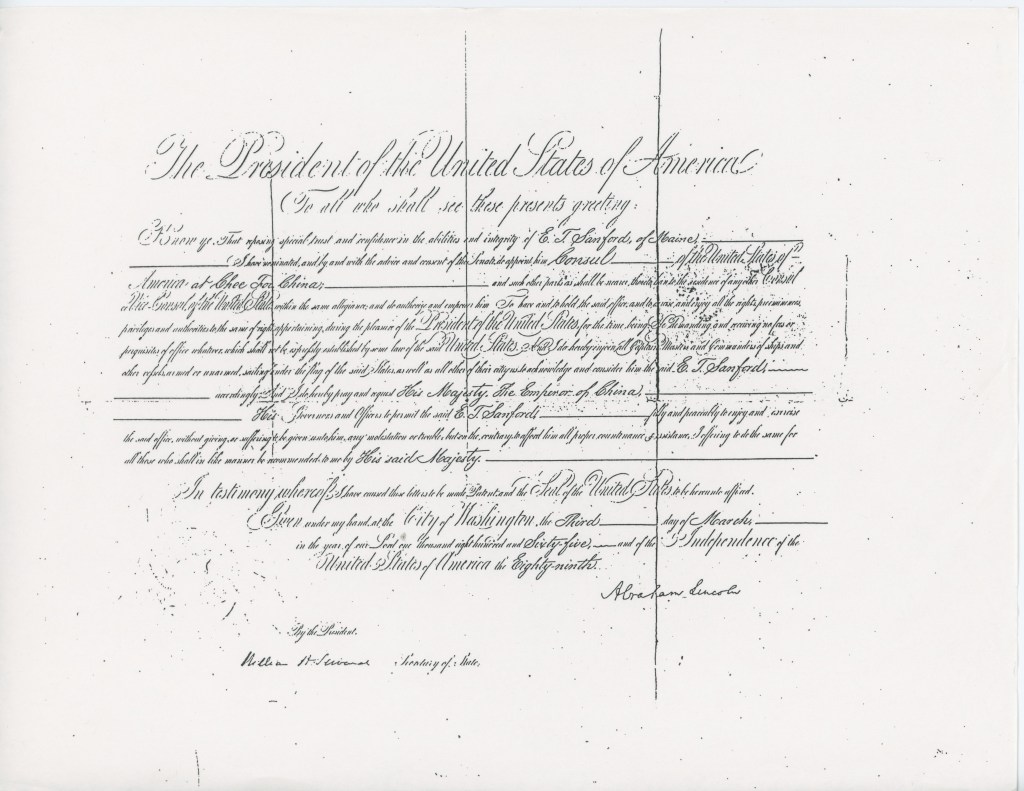 The President of the United States of America
To all who shall see these presents greeting:
Know ye, That reposing special trust and confidence in the abilities and integrity of E. T. Sanford, of Maine,
I have nominated, and by and with the advice and consent of the Senate, do appoint him Consul of the United States of
America at Chee Foo China, and such other parts as shall be nearer thereto than to the residence of any other Consul
or Vice-Consul of the United States within the same allegiance; and do authorize and empower him To have and to hold the said office, and to exercise and enjoy all the rights, preeminences,
privileges and authorities to the same of right appertaining, during the pleasure of the President of the United States, for the time being; He demanding and receiving no fees or
perquisites of office whatever, which shall not be expressly established by some law of the said United States. And I do hereby enjoin all Captains, Masters and Commanders of ships and
other vessels, armed or unarmed, sailing under the flag of the said States, as well as all other of their citizens to acknowledge and consider him the said E. T. Sanford,
accordingly. And I do hereby pray and request His Majesty, The Emperor of China,
His Governors and Officers to permit the said E. T. Sanford, fully and peaceably to enjoy and exercise
the said office, without giving, or suffering to be given unto him, any molestation or trouble, but on the contrary, to afford him all proper countenance & assistance, I offering to do the same for
all those who shall in like manner be recommended to me by His said Majesty.
In testimony whereof, I have caused these letters to be made Patent, and the Seal of the United States, to be hereunto affixed.
Given under my hand, at the City of Washington, the Third day of March,
in the year of our Lord one thousand eight hundred and Sixty-five, and of the Independence of the
United States of America the Eighty-ninth.
Abraham Lincoln
By the President.
William H. Seward Secretary of State.